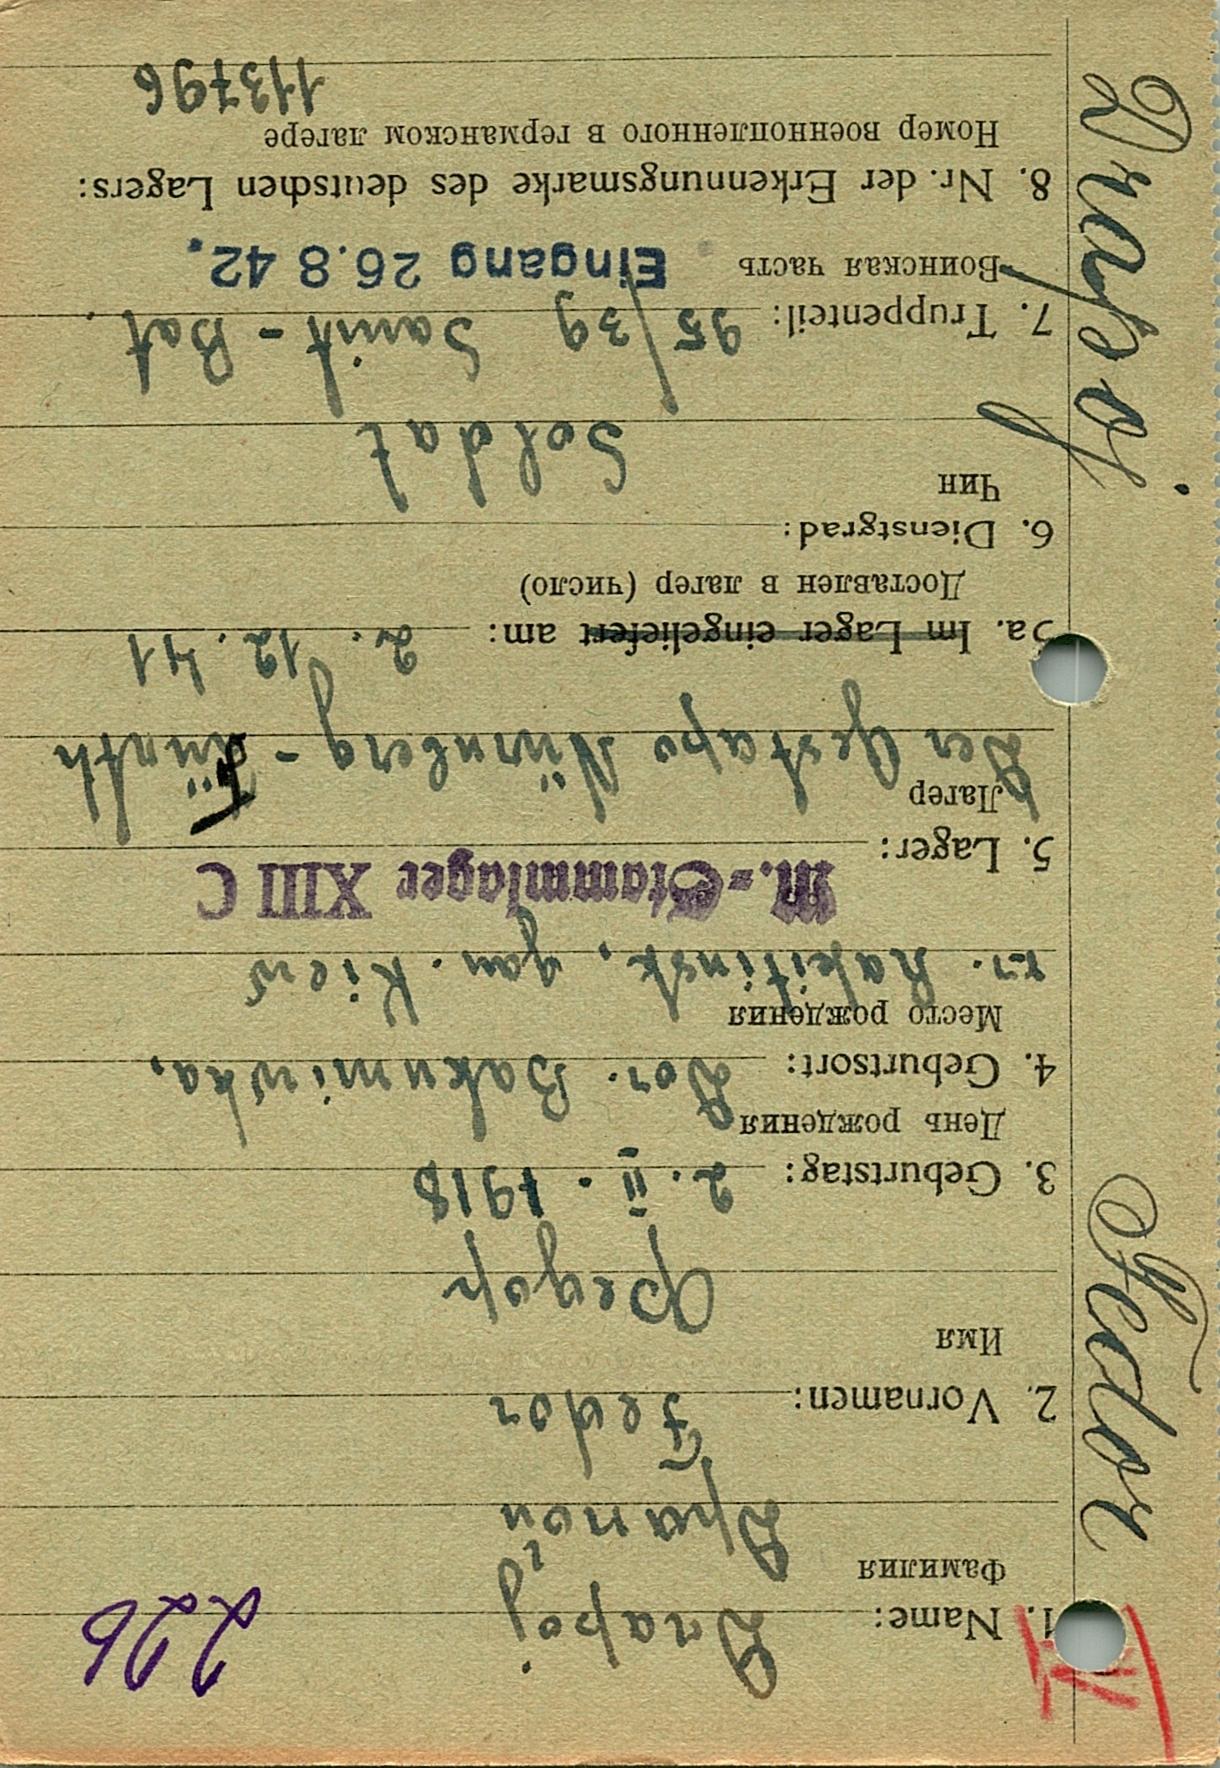 226
1. Name: Drapoj
Фамилия
Драпой
2. Vornamen: Fedor
Имя
Федор
3. Geburtstag: 2. II. 1918
День рождения
4. Geburtsort: Dor. Bakumiwka,
Место рождения
Rakitinsk, gou. Kiew
M.-Stammlager XIII C
5. Lager:
Лагер
Der Gestapo Nürnberg - Fürth
5a. Im Lager eingeliefert am: 2. 12. 41
Доставлен в лагер (число)
6. Dienstgrad:
Чин
Soldat
7. Truppenteil: 95/39 Sanit - Bat.
Воинская часть
Eingang 26. 8 42.
8. Nr. der Erkennungsmarke des deutschen Lagers:
Номер военнопленного в германском лагере
113796
Drapoj Fedor